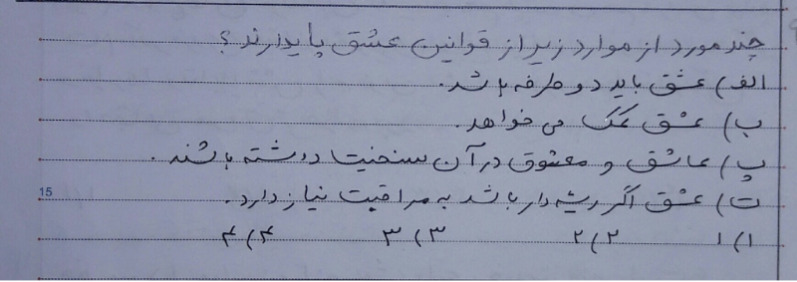 چند مورد از موارد زیر از قوانین عشق پایدارند؟
الف) عشق باید دو طرفه باشد.
ب) عشق محک می خواهد.
پ) عاشق و معشوق در آن سنخیت داشته باشند.
ت) عشق اگر ریشه دار باشد به مراقبت نیاز دارد.
15
۱) ۱ ۲) ۲ ۳) ۳ ۴) ۴